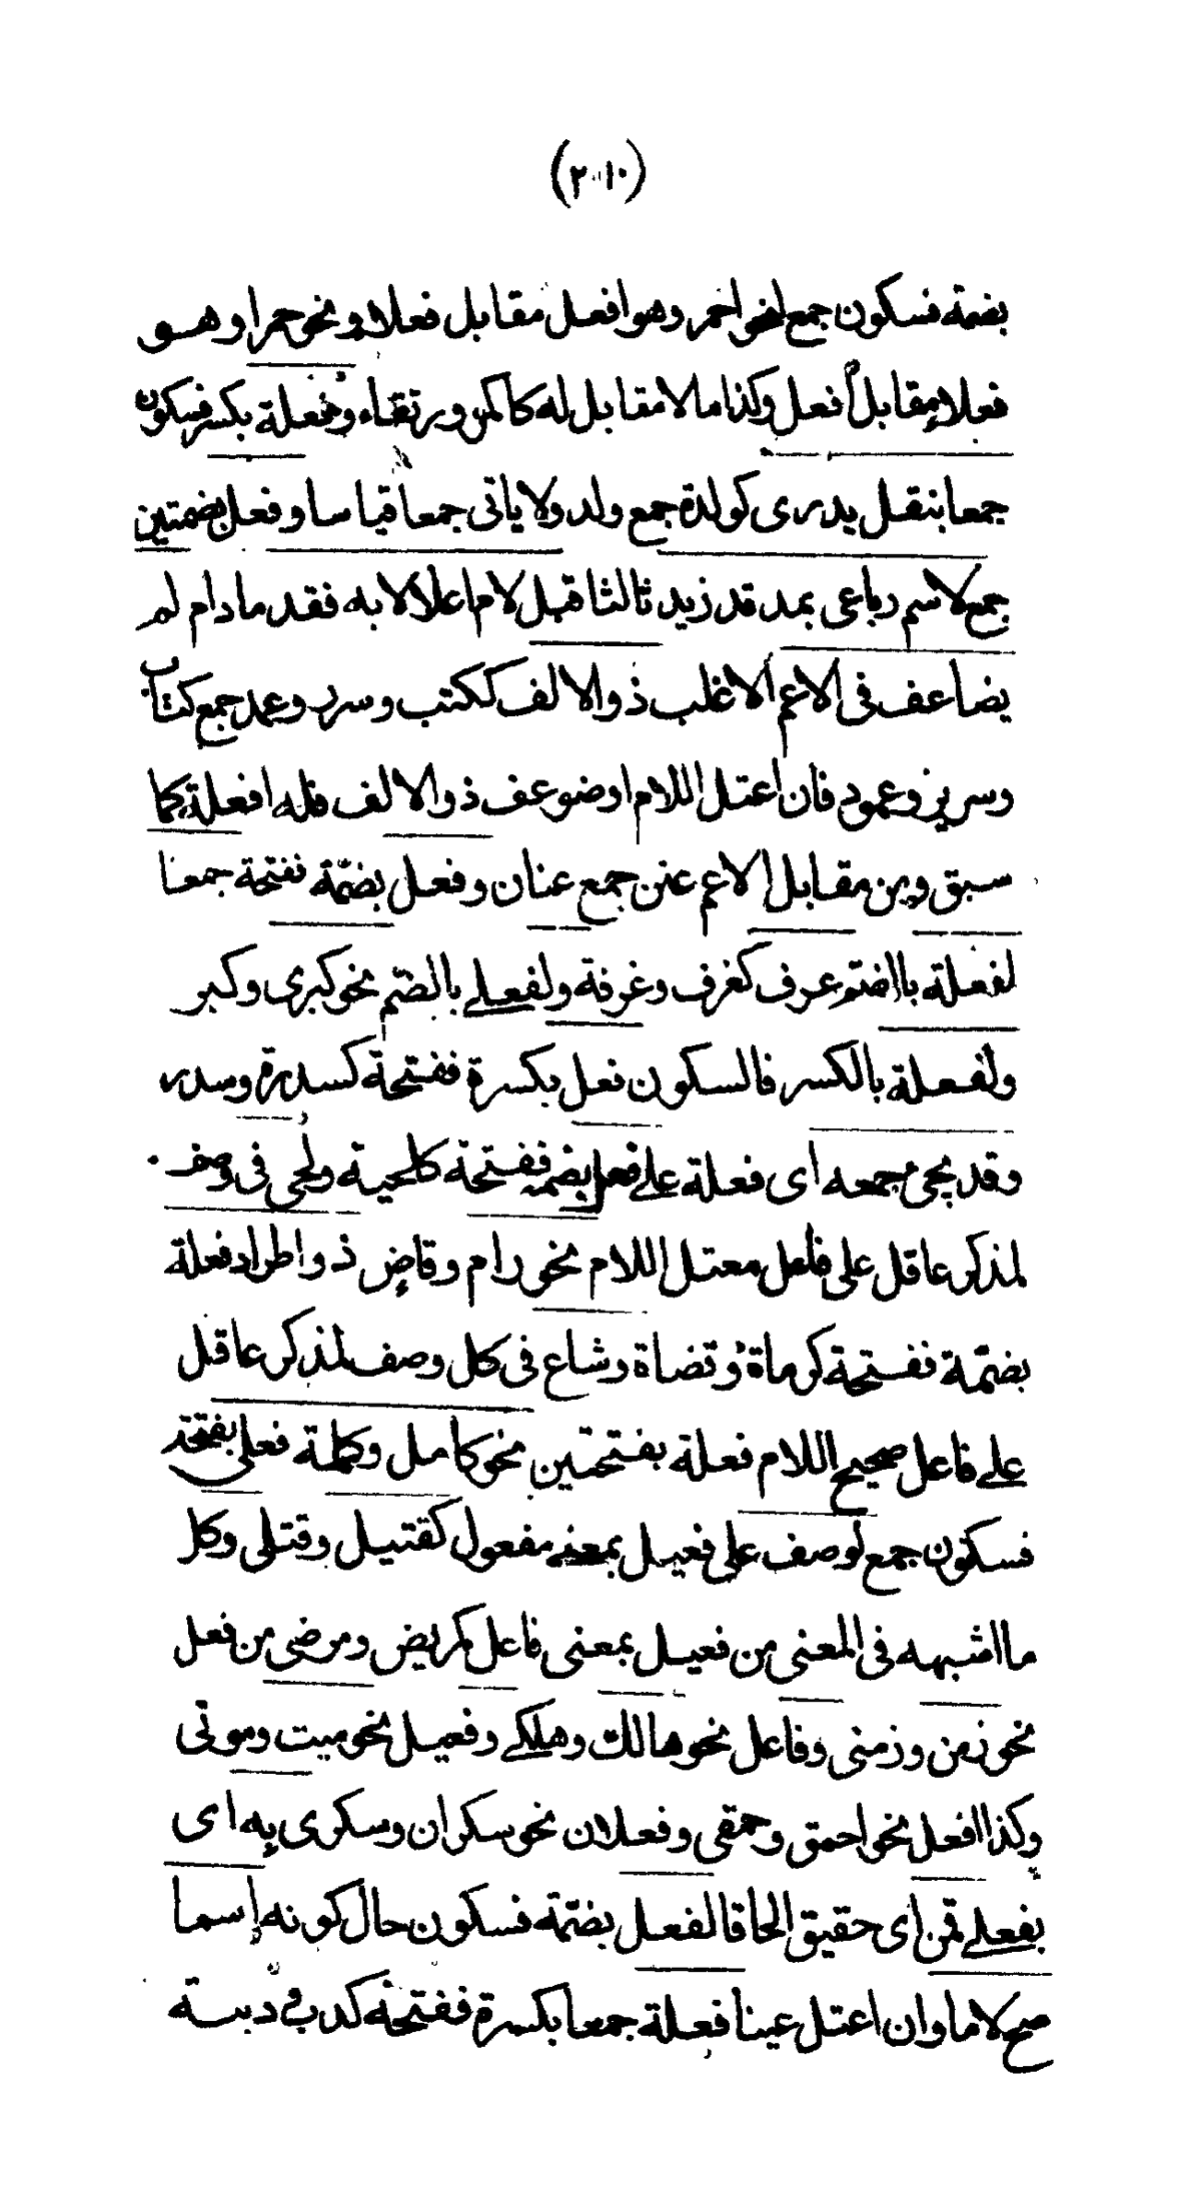 (٢٠١٠)
بضمة فسكون جمع لنحو احمر وهو افعل مقابل فعلاء ونحو حمرا وهو
فعلاء مقابل أفعل وكذا ما لا مقابل له كاكمر ورتقاء وفعلة بكسر فسكون
جمعا بنقل يدرى كولدة جمع ولد ولا ياتى جمعا قياسا وفعل بضمتين
جمع لاسم رباعى بمد قد زيد ثالثا قبل لام اعلالا به فقد ما دام لم
يضاعف فى الاعم الاغلب ذو الالف ككتب وسرر وعمد جمع كتاب
وسرير وعمود فان اعتل اللام او ضوعف ذو الالف فله افعلة كما
سبق ومن مقابل الاعم عنن جمع عنان وفعل بضمّة ففتحة جمعا
لفعلة بالضم عرف كغرف وغرفة ولفعلى بالضم نحو كبرى وكبر
ولفعلة بالكسر فالسكون فعل بكسرة ففتحة كسدرة وسدر
وقد يجئ جمعه اى فعلة على فعل بضم ففتحة كالحية ولحى فى وصف
لمذكر عاقل على فاعل معتل اللام نحو رام وقاضٍ ذو اطراد فعلة
بضمّة ففتحة كرماة وقضاة وشاع فى كل وصف لمذكر عاقل
على فاعل صحيح اللام فعلة بفتحتين نحو كامل وكملة فعلى بفتحة
فسكون جمع لوصف على فعيل بمعنى مفعول كقتيل وقتلى وكل
ما اشبهه فى المعنى من فعيل بمعنى فاعل كمريض ومرضى من فعل
نحو زمن وزمنى وفاعل نحو هالك وهلكى وفعيل نحو ميت وموتى
وكذا افعل نحو احمق وحمقى وفعلان نحو سكران وسكرى بِه اى
بفعلى قمن اى حقيق الحاقا لفعل بضمّة فسكون حال كونه إسما
صح لاما وان اعتل عينا فعلة جمعا بكسرة ففتحة كدب ودببة